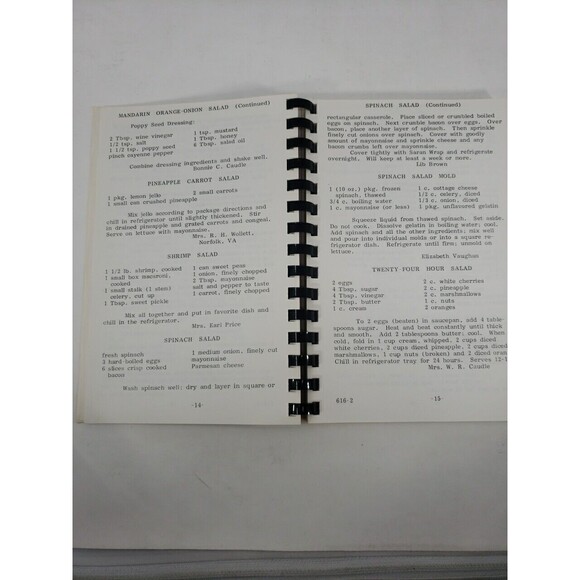 MANDARIN ORANGE-ONION SALAD (Continued)
Poppy Seed Dressing:
2 Tbsp. wine vinegar 1 tsp. mustard
1/2 tsp. salt 1 Tbsp. honey
1 1/2 tsp. poppy seed 6 Tbsp. salad oil
pinch cayenne pepper
Combine dressing ingredients and shake well.
Bonnie C. Caudle
PINEAPPLE CARROT SALAD
1 pkg. lemon jello 2 small carrots
1 small can crushed pineapple
Mix jello according to package directions and
chill in refrigerator until slightly thickened. Stir
in drained pineapple and grated carrots and congeal.
Serve on lettuce with mayonnaise.
Mrs. R. H. Wollett,
Norfolk, VA
SHRIMP SALAD
1 1/2 lb. shrimp, cooked 1 can sweet peas
1 small box macaroni, 1 onion, finely chopped
cooked mayonnaise
1 small stalk (1 stem) salt and pepper to taste
celery, cut up 1 carrot, finely chopped
1 Tbsp. sweet pickle
Mix all together and put in favorite dish and
chill in the refrigerator.
Mrs. Earl Price
SPINACH SALAD
fresh spinach 1 medium onion, finely cut
3 hard boiled eggs mayonnaise
6 slices crisp cooked Parmesan cheese
bacon
Wash spinach well; dry and layer in square or
-14-
SPINACH SALAD (Continued)
rectangular casserole. Place sliced or crumbled boiled
eggs on spinach. Next crumble bacon over eggs. Over
bacon, place another layer of spinach. Then sprinkle
finely cut onions over spinach. Cover with goodly
amount of mayonnaise and sprinkle cheese and any
bacon crumbs left over mayonnaise.
Cover tightly with Saran Wrap and refrigerate
overnight. Will keep at least a week or more.
Lib Brown
SPINACH SALAD MOLD
1 (10 oz.) pkg. frozen 1 c. cottage cheese
spinach, thawed 1/2 c. celery, diced
3/4 c. boiling water 1/3 c. onion, diced
1 c. mayonnaise (or less) 1 pkg. unflavored gelatin
Squeeze liquid from thawed spinach. Set aside.
Do not cook. Dissolve gelatin in boiling water; cool.
Add spinach and all the other ingredients; mix well
and pour into individual molds or into a square re-
frigerator dish. Refrigerate until firm; unmold on
lettuce.
Elizabeth Vaughan
TWENTY-FOUR HOUR SALAD
2 eggs 2 c. white cherries
4 Tbsp. sugar 2 c. pineapple
4 Tbsp. vinegar 2 c. marshmallows
2 Tbsp. butter 1 c. nuts
1 c. cream 2 oranges
To 2 eggs (beaten) in saucepan, add 4 table-
spoons sugar. Heat and beat constantly until thick
and smooth. Add 2 tablespoons butter; cool. When
cold, fold in 1 cup cream, whipped, 2 cups diced
white cherries, 2 cups diced pineapple, 2 cups diced
marshmallows, 1 cup nuts (broken) and 2 diced oran
Chill in refrigerator tray for 24 hours. Serves 12-1
Mrs. W. R. Caudle
616-2 -15-